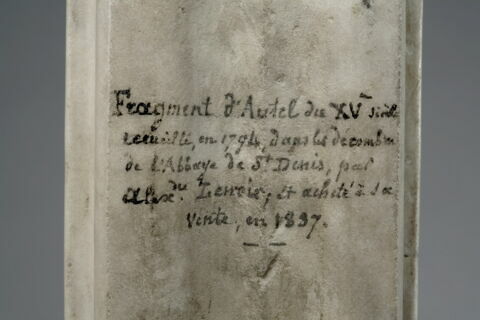 Fragment d'Autel du XVme siècle
recueilli, en 1794, dans les décombres
de l'Abbaye de St Denis, par
Alexdre Lenoir, et acheté à sa
Vente, en 1837.